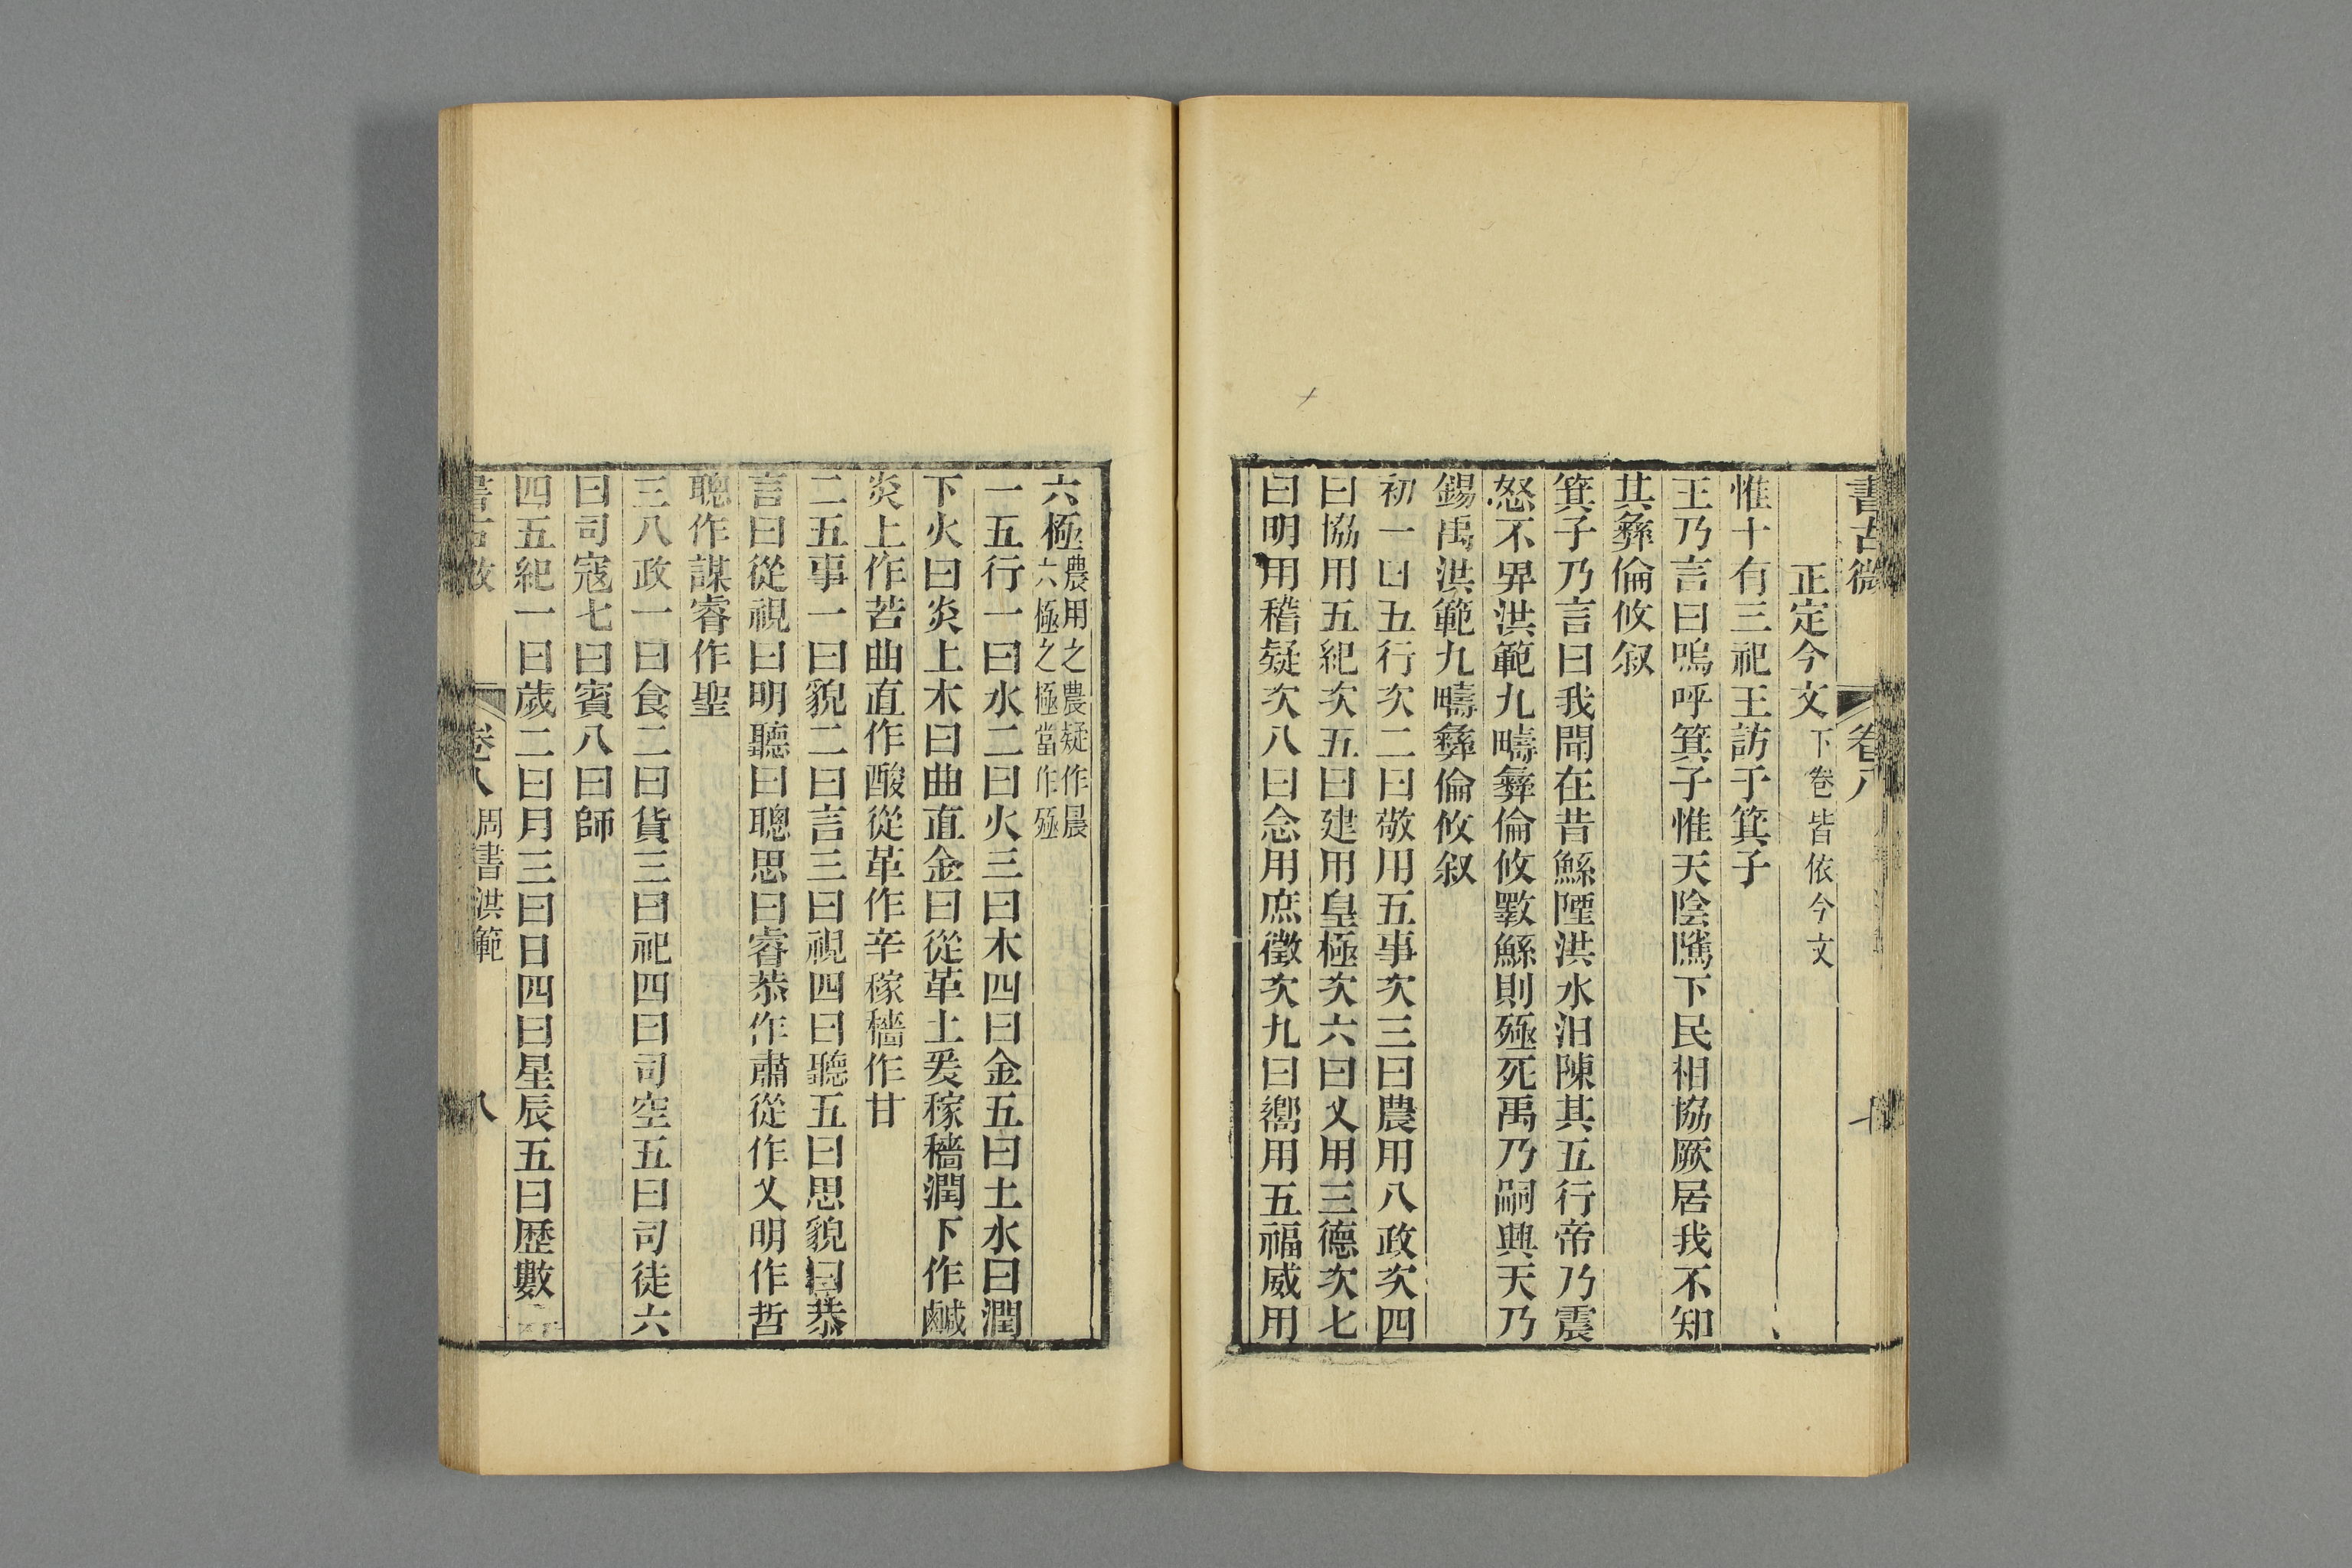 書古微 卷八 七
正定今文下卷皆依今文
惟十有三祀王訪于箕子
王乃言曰嗚呼箕子惟天陰隲下民相協厥居我不知
其彝倫攸叙
箕子乃言曰我聞在昔鯀陻洪水汩陳其五行帝乃震
怒不畀洪範九疇彝倫攸斁鯀則殛死禹乃嗣興天乃
錫禹洪範九疇彝倫攸叙
初一曰五行次二曰敬用五事次三曰農用八政次四
曰協用五紀次五曰建用皇極次六曰乂用三德次七
曰明用稽疑次八曰念用庶徵次九曰嚮用五福威用
六極農用之農疑作晨
六極之極當作殛
一五行一曰水二曰火三曰木四曰金五曰土水曰潤
下火曰炎上木曰曲直金曰從革土爰稼穡潤下作鹹
炎上作苦曲直作酸從革作辛稼穡作甘
二五事一曰貌二曰言三曰視四曰聽五曰思貌曰恭
言曰從視曰明聽曰聰思曰睿恭作肅從作乂明作哲
聰作謀睿作聖
三八政一曰食二曰貨三曰祀四曰司空五曰司徒六
曰司寇七曰賓八曰師
四五紀一曰歲二曰月三曰日四曰星辰五曰歷數
書古微 卷八 周書洪範 八